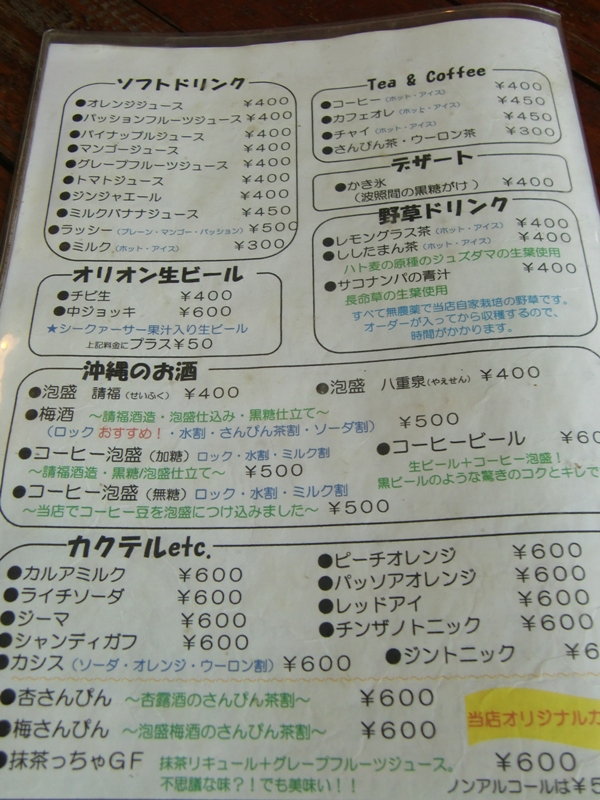 ソフトドリンク
●オレンジジュース ￥400
●パッションフルーツジュース ￥400
●パイナップルジュース ￥400
●マンゴージュース ￥400
●グレープフルーツジュース ￥400
●トマトジュース ￥400
●ジンジャエール ￥400
●ミルクバナナジュース ￥450
●ラッシー（プレーン・マンゴー・パッション） ￥500
●ミルク（ホット・アイス） ￥300
Tea & Coffee
●コーヒー（ホット・アイス） ￥400
●カフェオレ（ホット・アイス） ￥450
●チャイ（ホット・アイス） ￥450
●さんぴん茶・ウーロン茶 ￥300
デザート
●かき氷
（波照間の黒糖がけ） ￥400
野草ドリンク
●レモングラス茶（ホット・アイス） ￥400
●ししたまん茶（ホット・アイス） ￥400
ハト麦の原種のジュズダマの生葉使用
●サコナンバの青汁 ￥400
長命草の生葉使用
すべて無農薬で当店自家栽培の野草です。
オーダーが入ってから収穫するので、
時間がかかります。
オリオン生ビール
●チビ生 ￥400
●中ジョッキ ￥600
★シークァーサー果汁入り生ビール
上記料金にプラス￥50
沖縄のお酒
●泡盛 請福（せいふく） ￥400
●泡盛 八重泉（やえせん） ￥400
●梅酒 ～請福酒造・泡盛仕込み・黒糖仕立て～
（ロック おすすめ！・水割・さんぴん茶割・ソーダ割） ￥500
●コーヒー泡盛（加糖）ロック・水割・ミルク割
～請福酒造・黒糖/泡盛仕立て～ ￥500
●コーヒー泡盛（無糖）ロック・水割・ミルク割
～当店でコーヒー豆を泡盛につけ込みました～ ￥500
●コーヒービール ￥60
生ビール＋コーヒー泡盛！
黒ビールのような驚きのコクとキレで
カクテルetc.
●カルアミルク ￥600
●ライチソーダ ￥600
●ジーマ ￥600
●シャンディガフ ￥600
●カシス（ソーダ・オレンジ・ウーロン割） ￥600
●ピーチオレンジ ￥600
●パッソアオレンジ ￥600
●レッドアイ ￥600
●チンザノトニック ￥600
●ジントニック ￥6
●杏さんぴん ～杏露酒のさんぴん茶割～ ￥600
●梅さんぴん ～泡盛梅酒のさんぴん茶割～ ￥600
当店オリジナルカ
●抹茶っちゃGF 抹茶リキュール＋グレープフルーツジュース。 ￥600
不思議な味？！でも美味い！！ ノンアルコールは￥5